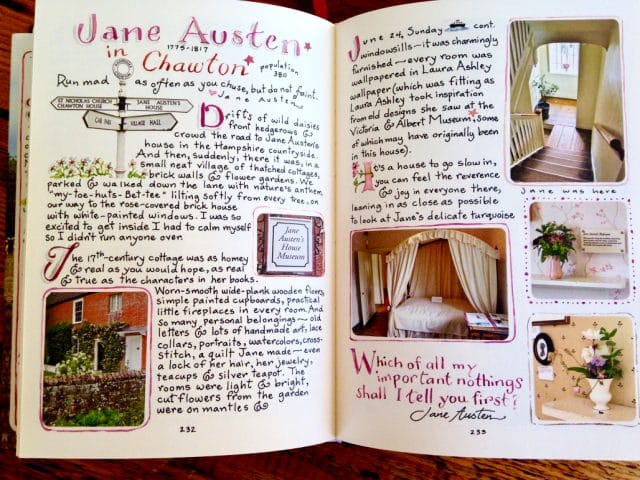 Jane Austen
1775-1817
in Chawton
population
380
Run mad as often as you chuse, but do not faint.
Jane Austen
ST NICHOLAS CHURCH
CHAWTON HOUSE
JANE AUSTEN'S
HOUSE
CAR PARK
VILLAGE HALL
Drifts of wild daisies
front hedgerows &
crowd the road to Jane Austen's
house in the Hampshire countryside.
And then, suddenly, there it was, in a
small neat village of thatched cottages,
brick walls & flower gardens. We
parked & walked down the lane with nature's anthem,
"my-toe-hurts-Bet-tee" lilting softly from every tree, on
our way to the rose-covered brick house
with white-painted windows. I was so
excited to get inside I had to calm myself
so I didn't run anyone over.
Jane
Austen's
House
Museum
The 17th-century cottage was as homey
& real as you would hope, as real
& true as the characters in her books.
Worn-smooth wide-plank wooden floors,
simple painted cupboards, practical
little fireplaces in every room. And
so many personal belongings ~ old
letters & lots of handmade art, lace
collars, portraits, watercolors, cross-
stitch, a quilt Jane made — even
a lock of her hair, her jewelry,
teacups & silver teapot. The
rooms were light & bright,
cut flowers from the garden
were on mantles &
232
June 24, Sunday cont.
windowsills — it was charmingly
furnished — every room was
wallpapered in Laura Ashley
wallpaper (which was fitting as
Laura Ashley took inspiration
from old designs she saw at the
Victoria & Albert Museum, some
of which may have originally been
in this house).
It's a house to go slow in,
you can feel the reverence
& joy in everyone there,
leaning in as close as possible
to look at Jane's delicate turquoise
Jane was here
Which of all my
important nothings
shall I tell you first?
Jane Austen
233